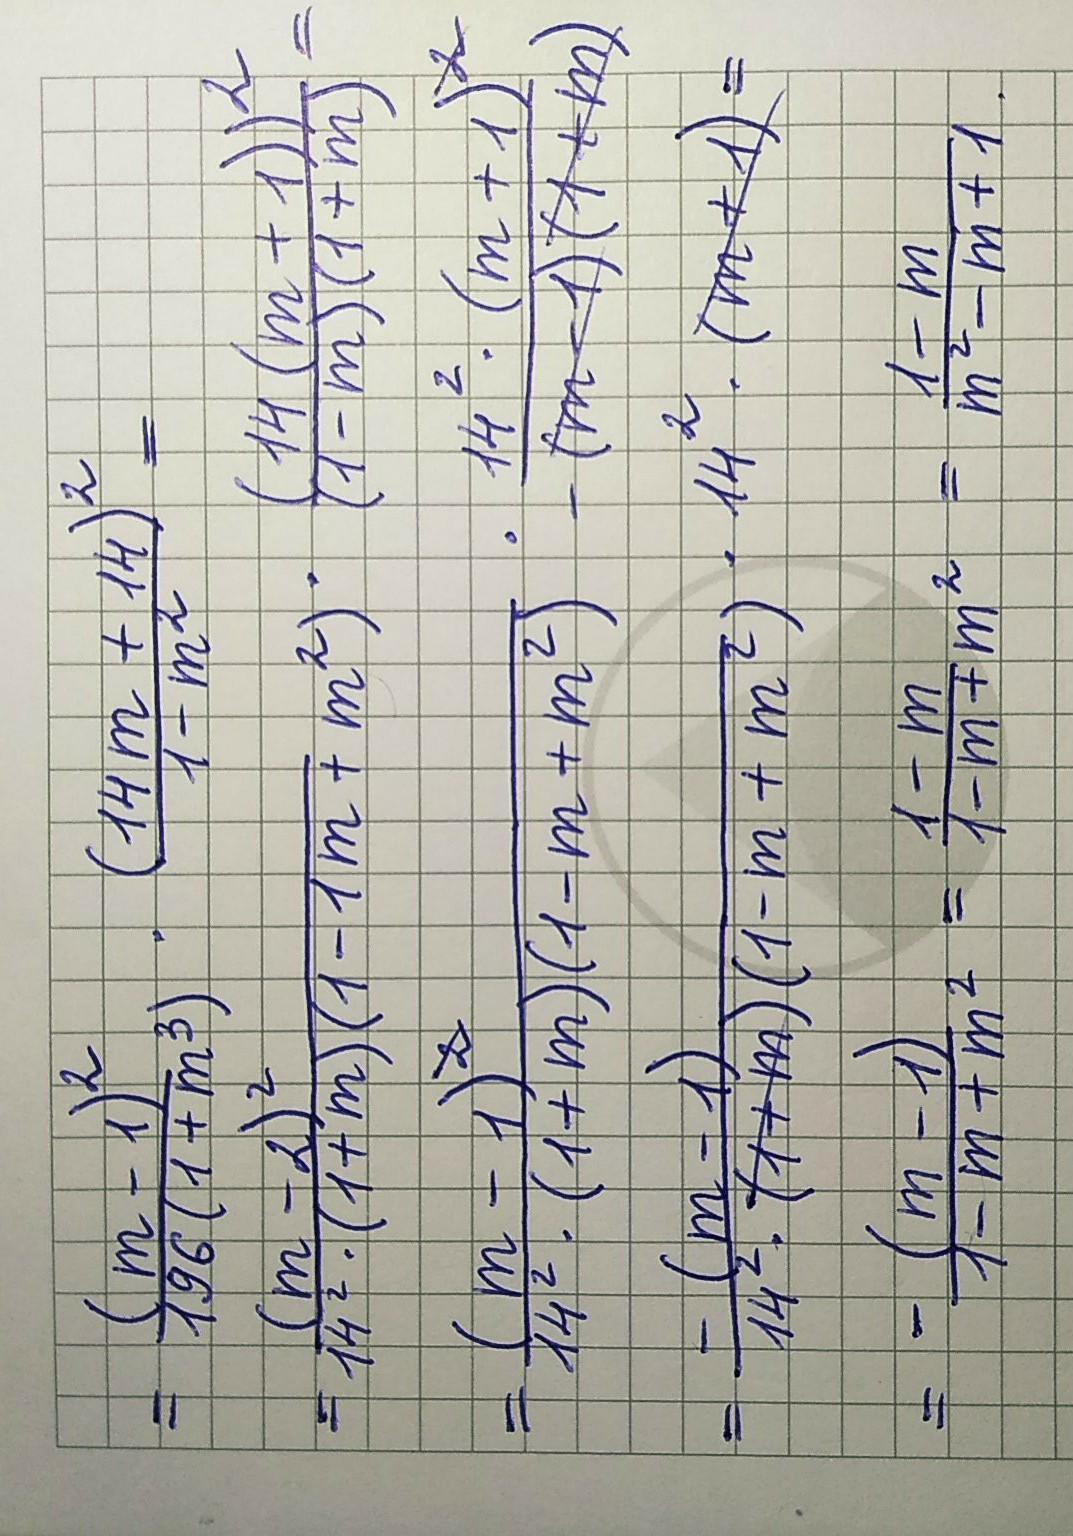 = (m - 1)² / 196(1 + m³) · (14m + 14)² / 1 - m² =
= (m - 2)² / 14² · (1 + m)(1 - 1m + m²) · (14(m + 1))² / (1 - m)(1 + m) =
= (m - 1)² / 14² · (1 + m)(1 - m + m²) · 14² · (m + 1)² / - (m - 1)(1 + m)
= - (m - 1) / 14² · (1 + m)(1 - m + m²) · 14² · (m + 1) =
= - (m - 1) / 1 - m + m² = 1 - m / 1 - m + m² = 1 - m / m² - m + 1 .